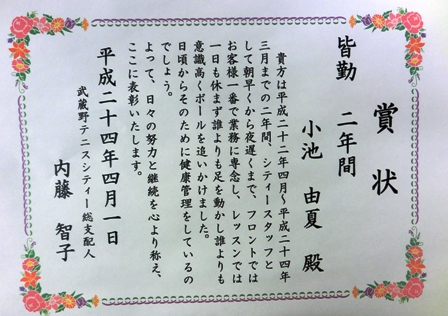 賞状
皆勤 二年間
小池 由夏 殿
貴方は平成二十二年四月~平成二十四年
三月までの二年間、シティースタッフと
して朝早くから夜遅くまで、フロントでは
お客様一番で業務に専念し、レッスンでは
一日も休まず誰よりも足を動かし誰よりも
意識高くボールを追いかけました。
日頃からそのために健康管理をしているの
でしょう。
よって、日々の努力と継続を心より称え、
ここに表彰いたします。
平成二十四年四月一日
武蔵野テニスシティー総支配人
内藤 智子